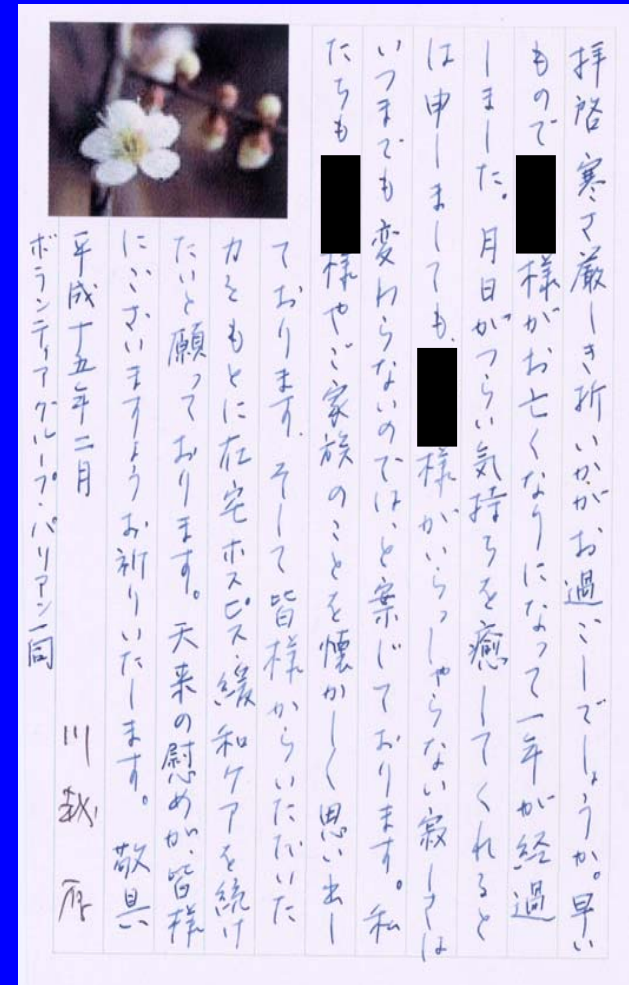 拝啓 寒さ厳しき折いかがお過ごしでしょうか。早い
もので 様がお亡くなりになって一年が経過
しました。月日がつらい気持ちを癒してくれると
は申しましても、 様がいらっしゃらない寂しさは
いつまでも変わらないのでは、と案じております。私
たちも 様やご家族のことを懐かしく思い出し
ております。そして皆様からいただいた
力をもとに在宅ホスピス・緩和ケアを続け
たいと願っております。天来の慰めが、皆様
にございますようお祈りいたします。 敬具
平成十五年二月 川越 厚
ボランティアグループ・パリアン一同